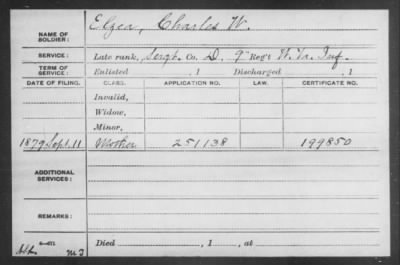 Elzea, Charles W.
NAME OF SOLDIER:
SERVICE: Late rank, Sergt. Co. D. 9" Reg't W. Va. Inf.
TERM OF SERVICE: Enlisted , 1 Discharged , 1
DATE OF FILING. CLASS. APPLICATION NO. LAW. CERTIFICATE NO.
Invalid,
Widow,
Minor,
1879 Sept. 11 Mother 251138 199850
ADDITIONAL SERVICES:
REMARKS:
Died , 1 , at